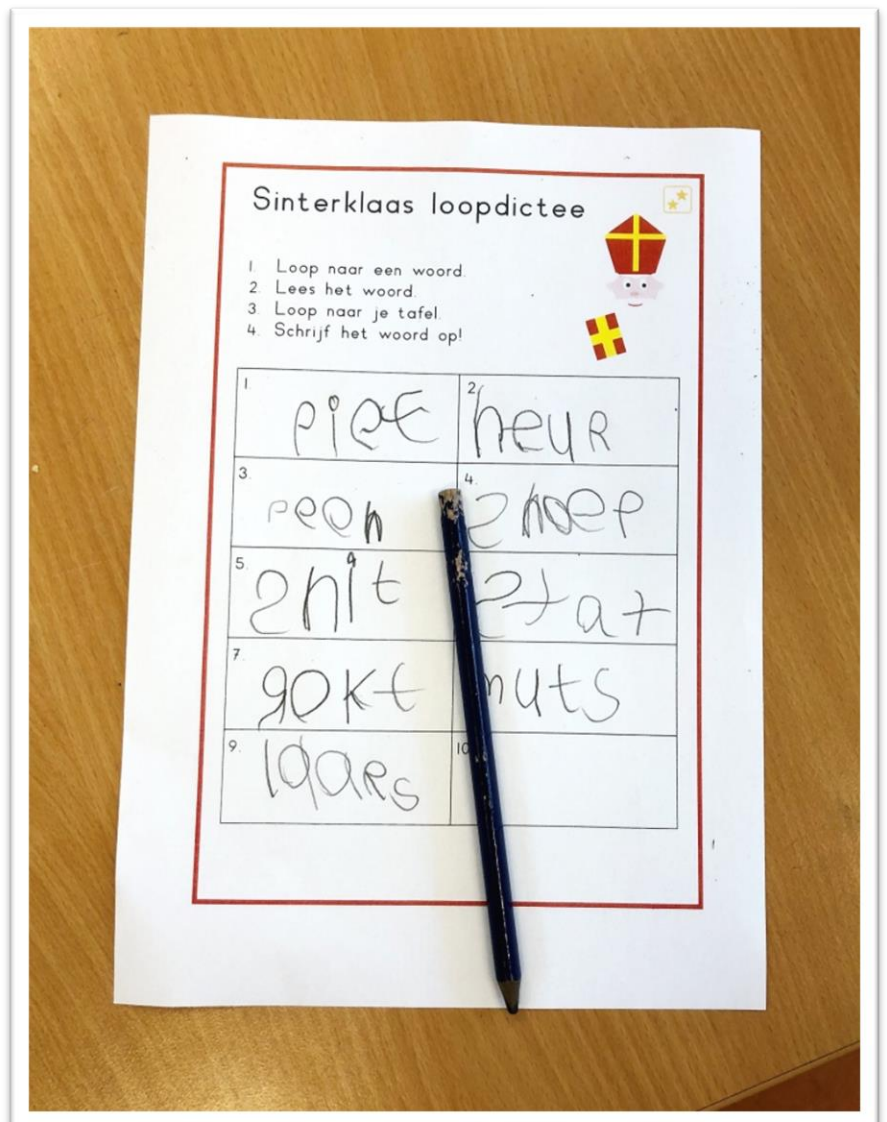 Sinterklaas loopdictee
1. Loop naar een woord.
2. Lees het woord.
3. Loop naar je tafel.
4. Schrijf het woord op!
1. piet
2. heur
3. peen
4. snoep
5. snit
stat
7. gokt
muts
9. laars
10